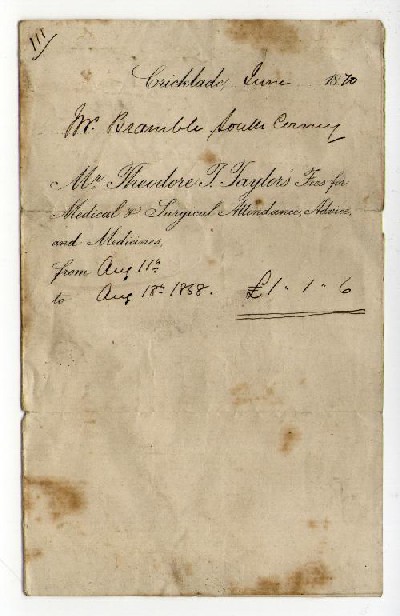 111
Cricklade, June 1870
Mr. Bramble South Cerney
Mr. Theodore T. Taylors Fees for
Medical & Surgical Attendance, Advice,
and Medicines,
from Aug 11th
to Aug 18th 1868. £1 - 1 - 6